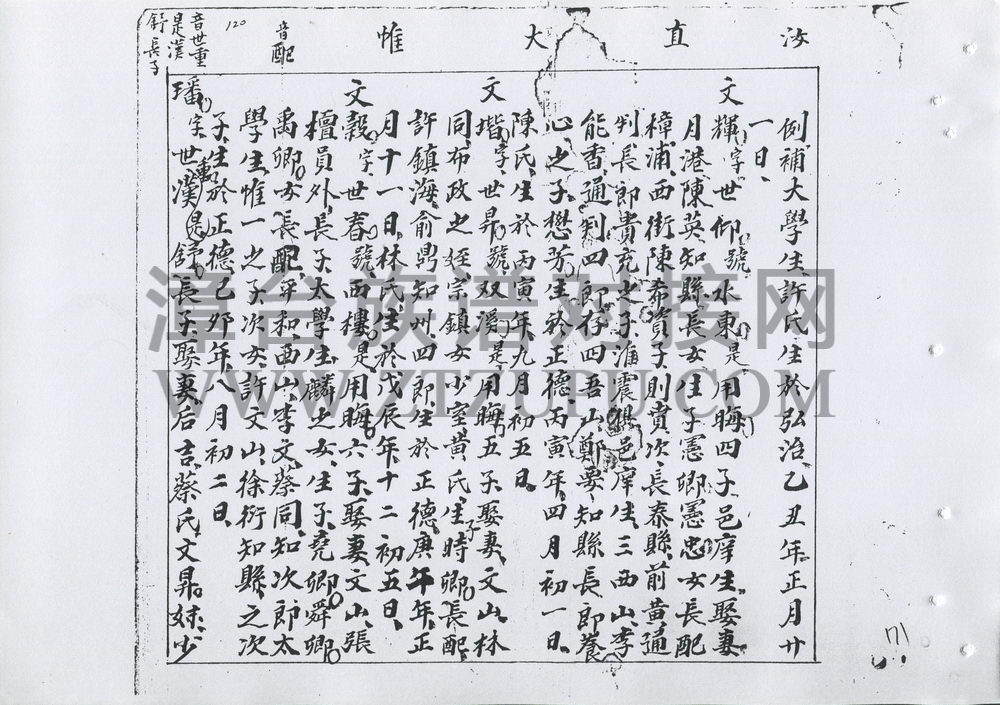 汝直大惟
音配
120
音世重
是漢
舒長子
例補大學生許氏生於弘治乙丑年正月廿
一日
文輝字世仰號水東是用晦四子邑庠生娶妻
月港陳英知縣長女生子憲卿憲忠女長配
樟浦西街陳希資子則貴次長泰縣前黃通
判長郎貴充之子浦震邑庠生三西山李
能香通判四郎存四吾山鄭要知縣長郎養
心之子懋芳生於正德丙寅年四月初一日
陳氏生於丙寅年九月初五日
文堦字世昇號双溪是用晦五子娶妻文山林
同布政之姪宗鎮女少室黃氏生子時卿長配
許鎮海俞鼎知州四郎生於正德庚午年正
月十一日林氏生於戊辰年十二初五日
文穀字世春號西樓是用晦六子娶妻文山張
檀員外長子太學生麟之女生子堯卿舜卿
禹卿女長配平和西山李文蔡同知次郎太
學生惟一之子次女許文山徐衍知縣之次
子生於正德己卯年八月初二日
璠字世重漢是舒長子娶妻后吉蔡氏文昇妹少
171
漳台族谱对接网
WWW.ZTZUPU.COM